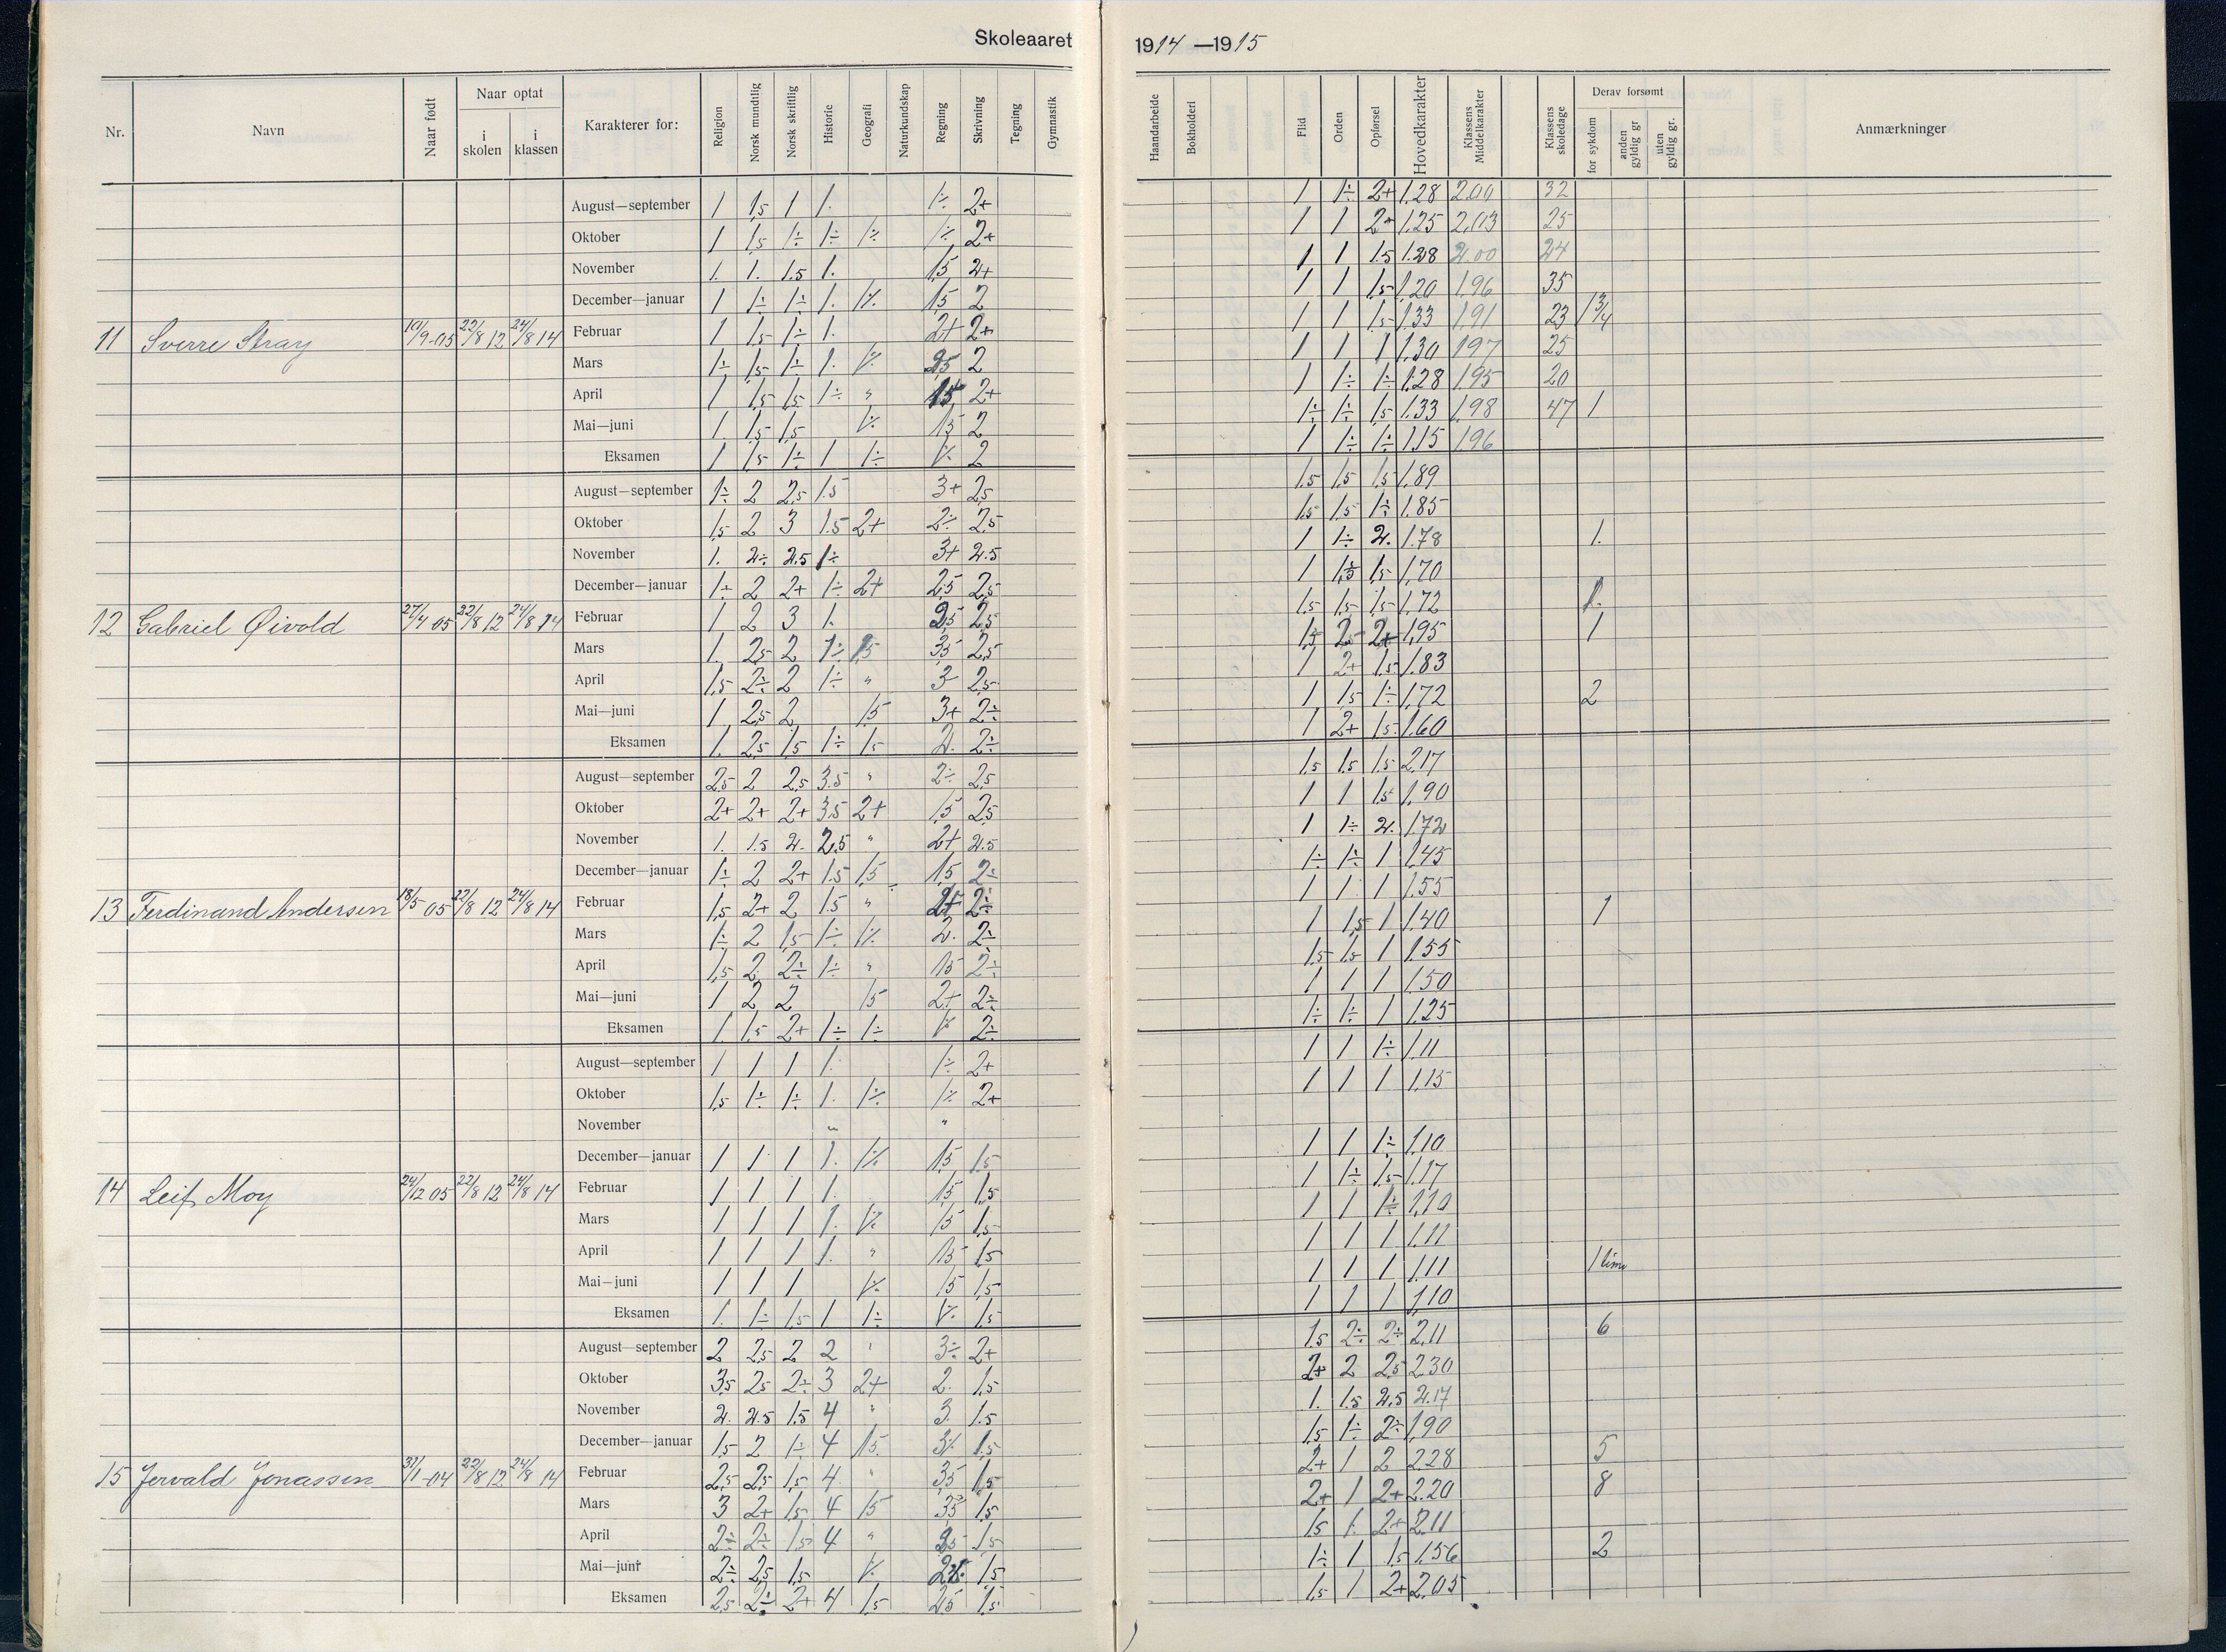 Skoleaaret 1914 —1915
Nr. Navn Naar født Naar optat i skolen i klassen Karakterer for: Religion Norsk mundtlig Norsk skriftlig Historie Geografi Naturkundskap Regning Skrivning Tegning Gymnastik Haandarbeide Bokholderi Flid Orden Opførsel Hovedkarakter Klassens Middelkarakter Klassens skoledage Derav forsømt for sykdom anden gyldig gr uten gyldig gr. Anmærkninger
August—september 1 1,5 1 1. 1÷ 2+ 1 1÷ 2+ 1.28 2.00 32
Oktober 1 1,5 1÷ 1÷ 1÷ 1÷ 2+ 1 1 2+ 1.25 2.03 25
November 1. 1. 1.5 1. 1,5 2+ 1 1 1.5 1.28 2.00 24
December—januar 1 1÷ 1÷ 1. 1÷ 1,5 2 1 1 1,5 1,20 1,96 35
11 Sverre Stray 22/8 12 24/8 14 Februar 1 1,5 1÷ 1. 2+ 2+ 1 1 1,5 1,33 1,91 23 1 3/4
Mars 1÷ 1,5 1÷ 1. 1÷ 2,5 2 1 1 1 1,30 1,97 25
April 1 1,5 1,5 1÷ " 1,5 2+ 1 1÷ 1÷ 1,28 1,95 20
Mai—juni 1. 1,5 1,5 1÷ 1,5 2 1÷ 1÷ 1,5 1.33 1,98 47 1.
Eksamen 1 1,5 1÷ 1 1÷ 1÷ 2 1 1÷ 1÷ 1,15 1,96
August—september 1÷ 2 2,5 1.5 3+ 2,5 1,5 1,5 1,5 1,89
Oktober 1,5 2 3 1.5 2+ 2÷ 2,5 1,5 1,5 1÷ 1.85
November 1. 2÷ 2.5 1÷ 3+ 2.5 1 1÷ 2. 1.78 1.
December—januar 1÷ 2 2+ 1÷ 2+ 2,5 2,5 1 1,5 1,5 1,70
12 Gabriel Øivold 27/4 05 22/8 12 24/8 14 Februar 1 2 3 1. 2,5 2,5 1,5 1,5 1,5 1,72 1.
Mars 1. 2,5 2 1÷ 1,5 3,5 2,5 1,5 2,5 2+ 1,95 1
April 1,5 2÷ 2 1÷ " 3 2,5 1 2+ 1,5 1.83
Mai—juni 1. 2,5 2 1,5 3+ 2÷ 1 1,5 1÷ 1,72 2
Eksamen 1. 2,5 1,5 1÷ 1,5 2. 2÷ 1 2+ 1,5 1.60
August—september 2,5 2 2,5 3.5 " 2÷ 2,5 1,5 1,5 1,5 2,17
Oktober 2+ 2+ 2+ 3,5 2+ 1,5 2,5 1 1 1,5 1,90
November 1. 1.5 2. 2,5 " 2+ 2.5 1 1÷ 2. 1.72
December—januar 1÷ 2 2+ 1.5 1,5 1,5 2÷ 1÷ 1÷ 1 1,45
13 Ferdinand Andersen 18/5 05 22/8 12 24/8 14 Februar 1,5 2+ 2 1.5 " 2+ 2÷ 1 1 1 1,55
Mars 1÷ 2 1,5 1÷ 1÷ 2. 2÷ 1 1,5 1 1,40 1
April 1,5 2 2÷ 1÷ " 1,5 2÷ 1,5 1,5 1 1.55
Mai—juni 1 2 2 1,5 2+ 2÷ 1 1 1 1,50
Eksamen 1. 1,5 2+ 1÷ 1÷ 1÷ 2÷ 1÷ 1÷ 1 1,25
August—september 1 1 1 1. 1÷ 2+ 1 1 1÷ 1,11
Oktober 1,5 1÷ 1÷ 1. 1÷ 1÷ 2+ 1 1 1 1,15
November " "
December—januar 1 1 1 1. 1÷ 1,5 1,5 1 1 1÷ 1,10
14 Leif Moy 24/12 05 22/8 12 24/8 14 Februar 1 1 1 1. 1,5 1,5 1 1÷ 1,5 1,17
Mars 1 1 1 1. 1÷ 1,5 1,5 1 1 1÷ 1,10
April 1 1 1 1. " 1,5 1,5 1 1 1 1,11
Mai—juni 1 1 1 1÷ 1,5 1,5 1 1 1 1,11 1 time
Eksamen 1. 1÷ 1,5 1 1÷ 1÷ 1,5 1 1 1 1,10
August—september 2 2,5 2 2 " 3÷ 2+ 1,5 2÷ 2÷ 2,11 6
Oktober 3,5 2,5 2÷ 3 2+ 2. 1,5 2+ 2 2,5 2,30
November 2. 2.5 1.5 4 " 3. 1.5 1. 1.5 2,5 2.17
December—januar 1,5 2 1÷ 4 1,5 3÷ 1,5 1,5 1÷ 2÷ 1,90
15 Jervald Jonassen 31/1-04 22/8 12 24/8 14 Februar 2,5 2,5 1,5 4 " 3,5 1,5 2+ 1 2 2,28 5
Mars 3 2+ 1,5 4 1,5 3,5 1,5 2+ 1 2+ 2.20 8
April 2÷ 2÷ 1,5 4 " 2,5 1,5 1,5 1. 2+ 2,11
Mai—juni 2÷ 2,5 1,5 1÷ 1,5 1÷ 1 1,5 1,56 2
Eksamen 2,5 2÷ 2+ 4 1,5 2,5 1,5 1,5 1 2+ 2,05